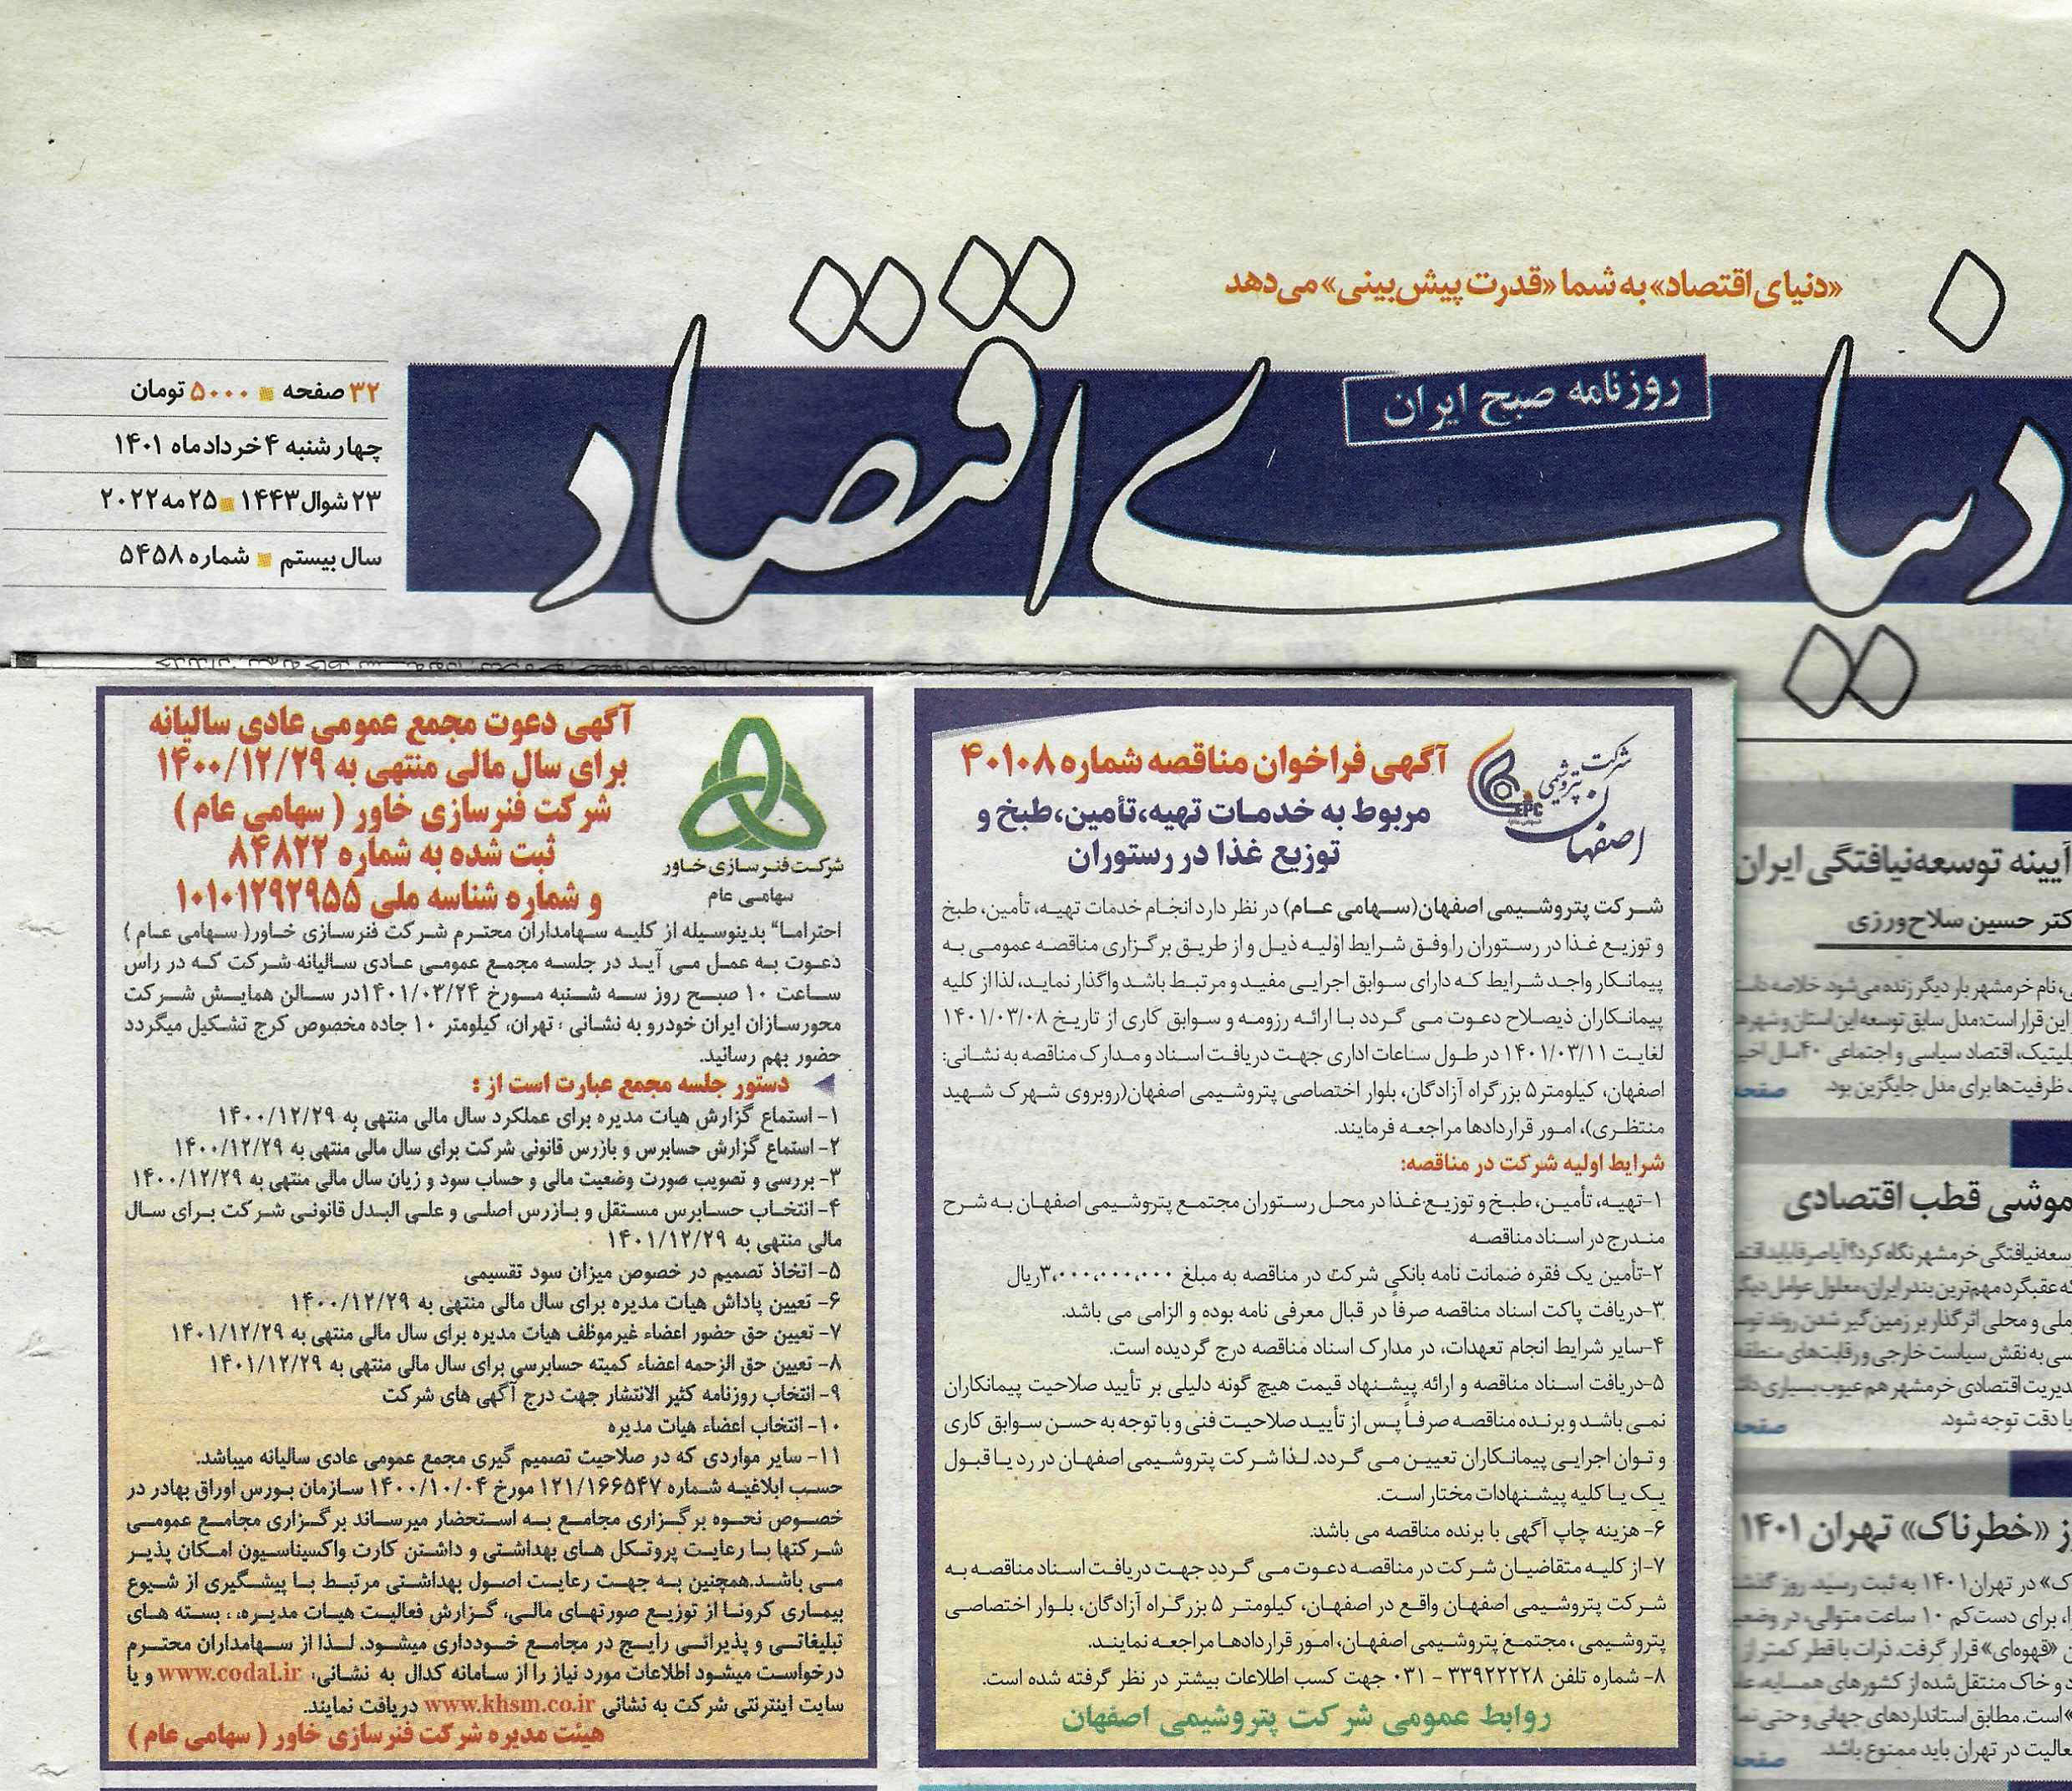 «دنیای اقتصاد» به شما «قدرت پیش‌بینی» می‌دهد
دنیای اقتصاد
روزنامه صبح ایران
۳۲ صفحه ۵۰۰۰ تومان
چهارشنبه ۴ خرداد ماه ۱۴۰۱
۲۳ شوال ۱۴۴۳ ۲۵ مه ۲۰۲۲
سال بیستم شماره ۵۴۵۸
آیینه توسعه‌نیافتگی ایران
حسین سلاح‌ورزی
نام خرمشهر بار دیگر زنده می‌شود. خلاصه
این قرار است: مدل سابق توسعه این استان و
اقتصاد سیاسی و اجتماعی ۴۰سال
ظرفیت‌ها برای مدل جایگزین بود.
قطب اقتصادی
خرمشهر نگاه کرد؟ آیا
عقبگرد مهم‌ترین بندر ایران، معلول عوامل
ملی و محلی اثرگذار بر زمین‌گیر شدن روند
به نقش سیاست خارجی و رقابت‌های
اقتصادی خرمشهر هم عیوب بسیاری
دقت توجه شود.
«خطرناک» تهران ۱۴۰۱
در تهران ۱۴۰۱ به ثبت رسید. روز
برای دست‌کم ۱۰ ساعت متوالی، در
«قهوه‌ای» قرار گرفت. ذرات با قطر کمتر از
و خاک منتقل‌شده از کشورهای همسایه،
است. مطابق استانداردهای جهانی و حتی
در تهران باید ممنوع باشد.
شرکت پتروشیمی اصفهان
EPC
آگهی فراخوان مناقصه شماره ۴۰۱۰۸
مربوط به خدمات تهیه،تأمین،طبخ و
توزیع غذا در رستوران
شرکت پتروشیمی اصفهان(سهامی عام) در نظر دارد انجام خدمات تهیه، تأمین، طبخ
و توزیع غذا در رستوران را وفق شرایط اولیه ذیل و از طریق برگزاری مناقصه عمومی به
پیمانکار واجد شرایط که دارای سوابق اجرایی مفید و مرتبط باشد واگذار نماید، لذا از کلیه
پیمانکاران ذیصلاح دعوت می گردد با ارائه رزومه و سوابق کاری از تاریخ ۱۴۰۱/۰۳/۰۸
لغایت ۱۴۰۱/۰۳/۱۱ در طول ساعات اداری جهت دریافت اسناد و مدارک مناقصه به نشانی:
اصفهان، کیلومتر ۵ بزرگراه آزادگان، بلوار اختصاصی پتروشیمی اصفهان(روبروی شهرک شهید
منتظری)، امور قراردادها مراجعه فرمایند.
شرایط اولیه شرکت در مناقصه:
۱-تهیه، تأمین، طبخ و توزیع غذا در محل رستوران مجتمع پتروشیمی اصفهان به شرح
مندرج در اسناد مناقصه
۲-تأمین یک فقره ضمانت نامه بانکی شرکت در مناقصه به مبلغ ۳،۰۰۰،۰۰۰،۰۰۰ریال
۳-دریافت پاکت اسناد مناقصه صرفاً در قبال معرفی نامه بوده و الزامی می باشد.
۴-سایر شرایط انجام تعهدات، در مدارک اسناد مناقصه درج گردیده است.
۵-دریافت اسناد مناقصه و ارائه پیشنهاد قیمت هیچ گونه دلیلی بر تأیید صلاحیت پیمانکاران
نمی باشد و برنده مناقصه صرفاً پس از تأیید صلاحیت فنی و با توجه به حسن سوابق کاری
و توان اجرایی پیمانکاران تعیین می گردد. لذا شرکت پتروشیمی اصفهان در رد یا قبول
یک یا کلیه پیشنهادات مختار است.
۶- هزینه چاپ آگهی با برنده مناقصه می باشد.
۷-از کلیه متقاضیان شرکت در مناقصه دعوت می گردد جهت دریافت اسناد مناقصه به
شرکت پتروشیمی اصفهان واقع در اصفهان، کیلومتر ۵ بزرگراه آزادگان، بلوار اختصاصی
پتروشیمی ، مجتمع پتروشیمی اصفهان، امور قراردادها مراجعه نمایند.
۸- شماره تلفن ۳۳۹۲۲۲۲۸ - ۰۳۱ جهت کسب اطلاعات بیشتر در نظر گرفته شده است.
روابط عمومی شرکت پتروشیمی اصفهان
شرکت فنرسازی خاور
سهامی عام
آگهی دعوت مجمع عمومی عادی سالیانه
برای سال مالی منتهی به ۱۴۰۰/۱۲/۲۹
شرکت فنرسازی خاور ( سهامی عام )
ثبت شده به شماره ۸۴۸۲۲
و شماره شناسه ملی ۱۰۱۰۱۲۹۲۹۵۵
احتراما" بدینوسیله از کلیه سهامداران محترم شرکت فنرسازی خاور( سهامی عام )
دعوت به عمل می آید در جلسه مجمع عمومی عادی سالیانه شرکت که در راس
ساعت ۱۰ صبح روز سه شنبه مورخ ۱۴۰۱/۰۳/۲۴در سالن همایش شرکت
محورسازان ایران خودرو به نشانی : تهران، کیلومتر ۱۰ جاده مخصوص کرج تشکیل میگردد
حضور بهم رسانید.
دستور جلسه مجمع عبارت است از :
۱- استماع گزارش هیات مدیره برای عملکرد سال مالی منتهی به ۱۴۰۰/۱۲/۲۹
۲- استماع گزارش حسابرس و بازرس قانونی شرکت برای سال مالی منتهی به ۱۴۰۰/۱۲/۲۹
۳- بررسی و تصویب صورت وضعیت مالی و حساب سود و زیان سال مالی منتهی به ۱۴۰۰/۱۲/۲۹
۴- انتخاب حسابرس مستقل و بازرس اصلی و علی البدل قانونی شرکت برای سال
مالی منتهی به ۱۴۰۱/۱۲/۲۹
۵- اتخاذ تصمیم در خصوص میزان سود تقسیمی
۶- تعیین پاداش هیات مدیره برای سال مالی منتهی به ۱۴۰۰/۱۲/۲۹
۷- تعیین حق حضور اعضاء غیرموظف هیات مدیره برای سال مالی منتهی به ۱۴۰۱/۱۲/۲۹
۸- تعیین حق الزحمه اعضاء کمیته حسابرسی برای سال مالی منتهی به ۱۴۰۱/۱۲/۲۹
۹- انتخاب روزنامه کثیر الانتشار جهت درج آگهی های شرکت
۱۰- انتخاب اعضاء هیات مدیره
۱۱- سایر مواردی که در صلاحیت تصمیم گیری مجمع عمومی عادی سالیانه میباشد.
حسب ابلاغیه شماره ۱۲۱/۱۶۶۵۴۷ مورخ ۱۴۰۰/۱۰/۰۴ سازمان بورس اوراق بهادر در
خصوص نحوه برگزاری مجامع به استحضار میرساند برگزاری مجامع عمومی
شرکتها با رعایت پروتکل های بهداشتی و داشتن کارت واکسیناسیون امکان پذیر
می باشد.همچنین به جهت رعایت اصول بهداشتی مرتبط با پیشگیری از شیوع
بیماری کرونا از توزیع صورتهای مالی، گزارش فعالیت هیات مدیره، ، بسته های
تبلیغاتی و پذیرائی رایج در مجامع خودداری میشود. لذا از سهامداران محترم
درخواست میشود اطلاعات مورد نیاز را از سامانه کدال به نشانی: www.codal.ir و یا
سایت اینترنتی شرکت به نشانی www.khsm.co.ir دریافت نمایند.
هیئت مدیره شرکت فنرسازی خاور ( سهامی عام )